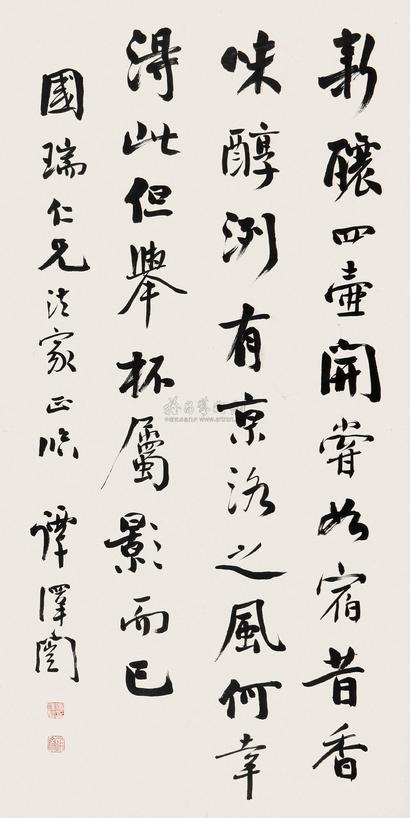 新釀四壺開嘗如宿昔香
味醇洌有京洛之風何幸
得此但舉杯屬影而已
國瑞仁兄法家正臨
譚澤闓